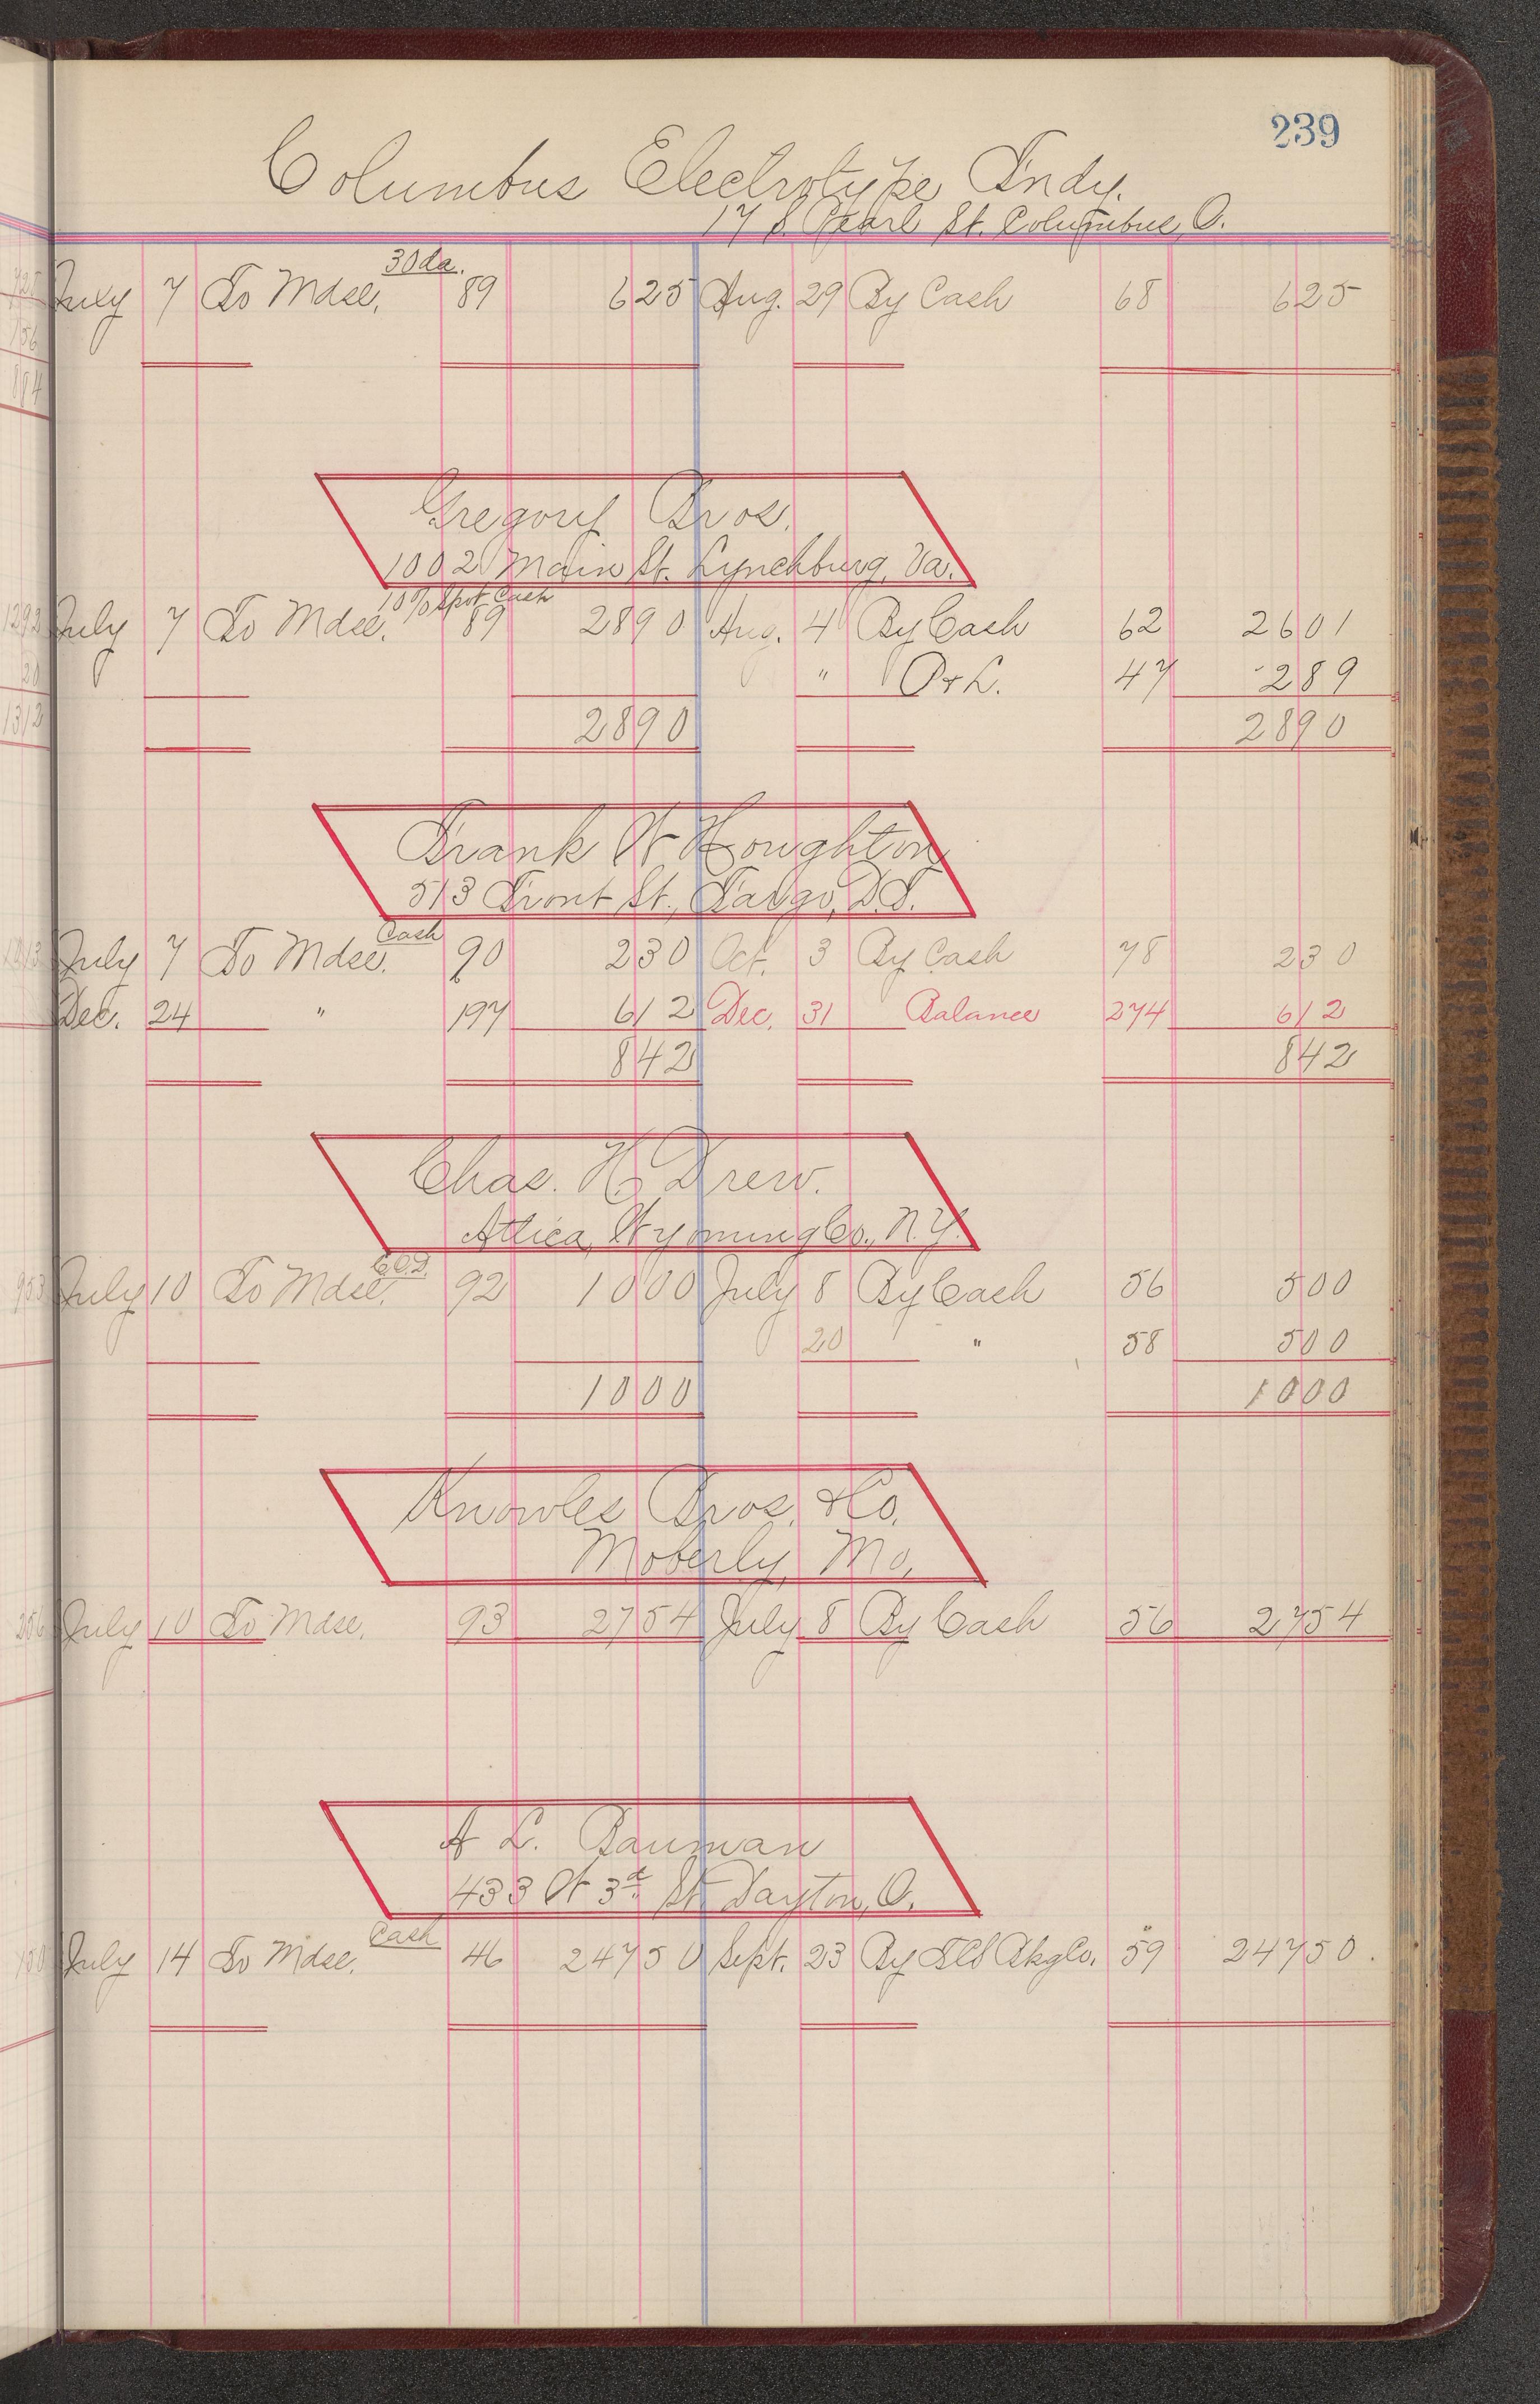 239
Columbus Electrotype Fndy.
17 S. Pearl St. Columbus, O.
30 da.
July 7 To Mdse. 89 625 Aug. 29 By Cash 68 625
Gregory Bros.
1002 Main St. Lynchburg, Va.
10% Spot Cash
July 7 To Mdse. 89 2890 Aug. 4 By Cash 62 2601
" P & L. 47 289
2890 2890
Frank W Houghton
513 Front St., Fargo, D.T.
Cash
July 7 To Mdse. 90 230 Oct. 3 By Cash 78 230
Dec. 24 " 197 612 Dec. 31 Balance 274 612
842 842
Chas. H. Drew.
Attica, Wyoming Co., N.Y.
C.O.D.
July 10 To Mdse. 92 1000 July 8 By Cash 56 500
20 " 58 500
1000 1000
Knowles Bros. & Co.
Moberly, Mo.
July 10 To Mdse. 93 2754 July 8 By Cash 56 2754
A L. Bauman
433 W 3d St. Dayton, O.
Cash
July 14 To Mdse. 46 24750 Sept. 23 By Bkg Co. 59 24750.